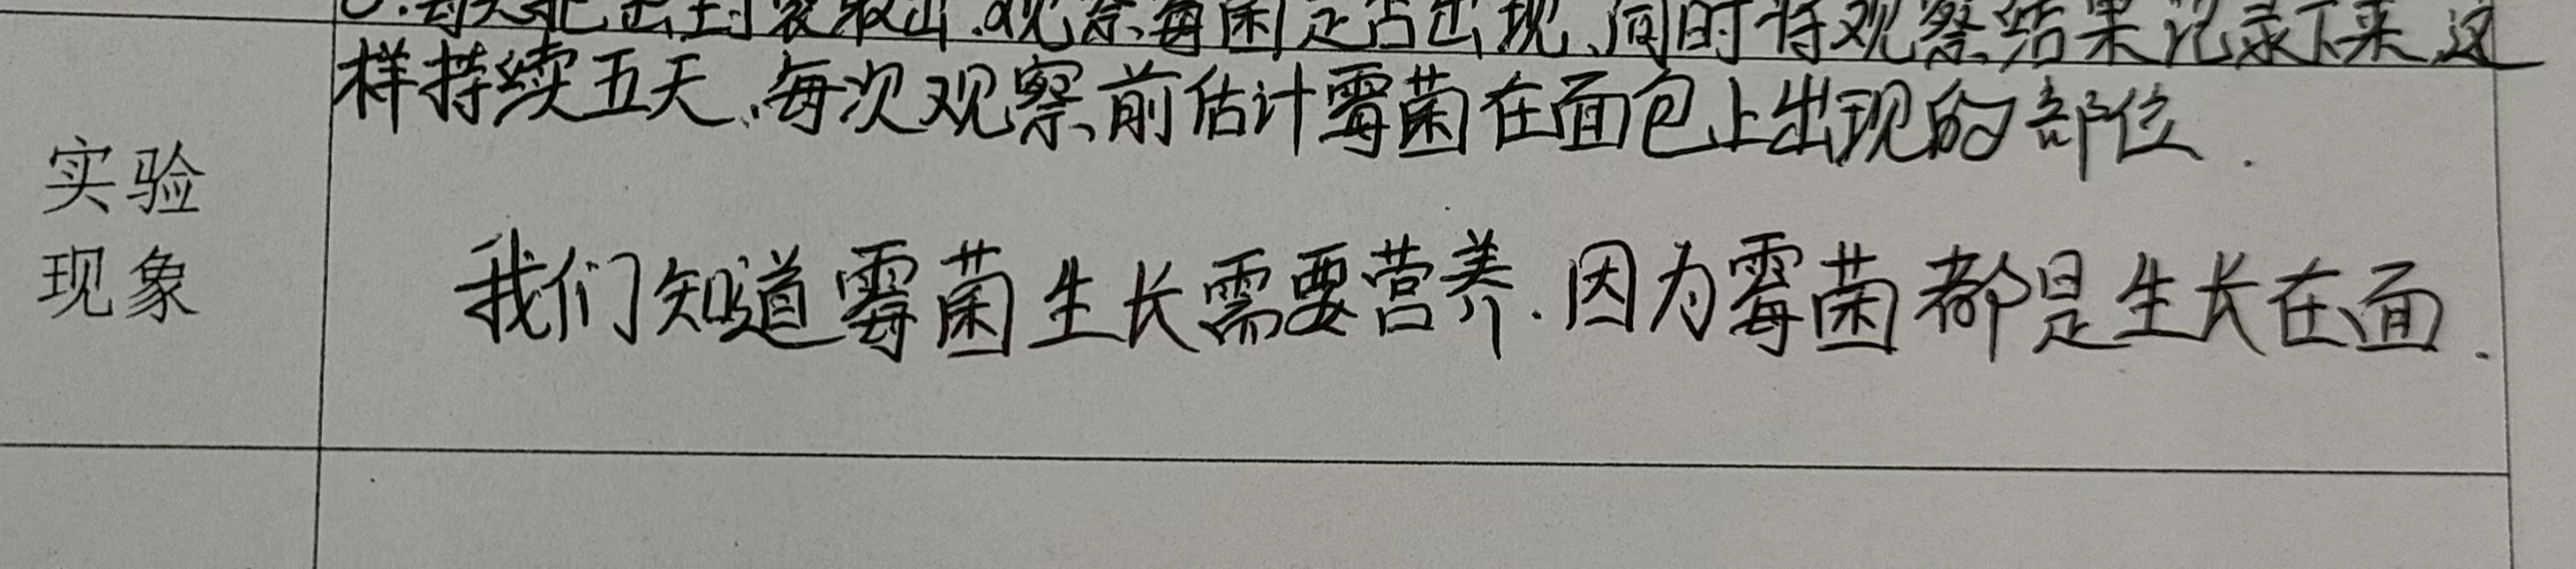 每天把密封袋取出.观察霉菌是否出现、同时将观察结果记录下来这
样持续五天、每次观察前估计霉菌在面包上出现的部位.
实验
现象
我们知道霉菌生长需要营养.因为霉菌都是生长在面.